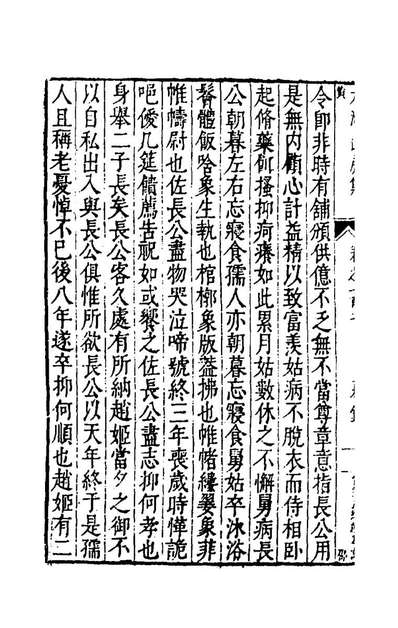 令即非時有舖頒供億不乏無不當尊章意指長公用
是無内顧心計益精以致富羡姑病不脫衣而侍相卧
起脩藥餌搔抑疴癢如此累月姑數休之不懈舅病長
公朝暮左右忘寢食孺人亦朝暮忘寢食舅姑卒沐浴
鬠體飯唅象生執也棺槨象版蓋拂也帷帾縷翣象菲
帷幬尉也佐長公盡物哭泣啼號終三年喪歲時愅詭
唈僾几筵饋薦告祝如或饗之佐長公盡志抑何孝也
身舉二子長矣長公客久處有所納趙姬當夕之御不
以自私出入與長公俱惟所欲長公以天年終于是孺
人且稱老憂悼不已後八年遂卒抑何順也趙姬有二